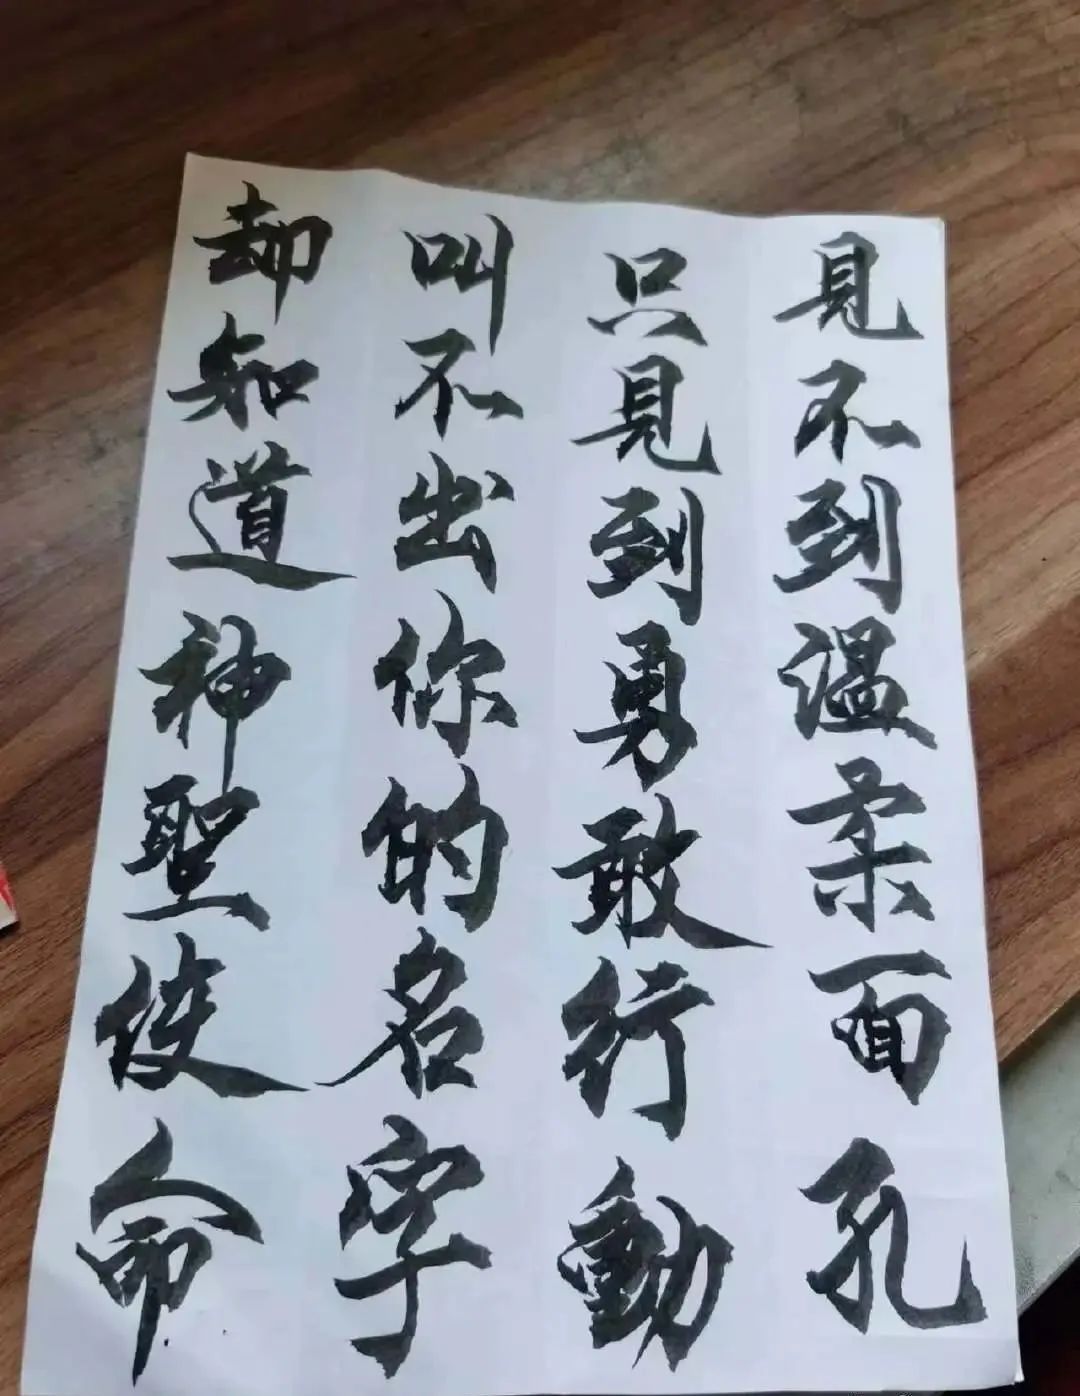 見不到温柔面孔
只見到勇敢行動
叫不出你的名字
却知道神聖使命